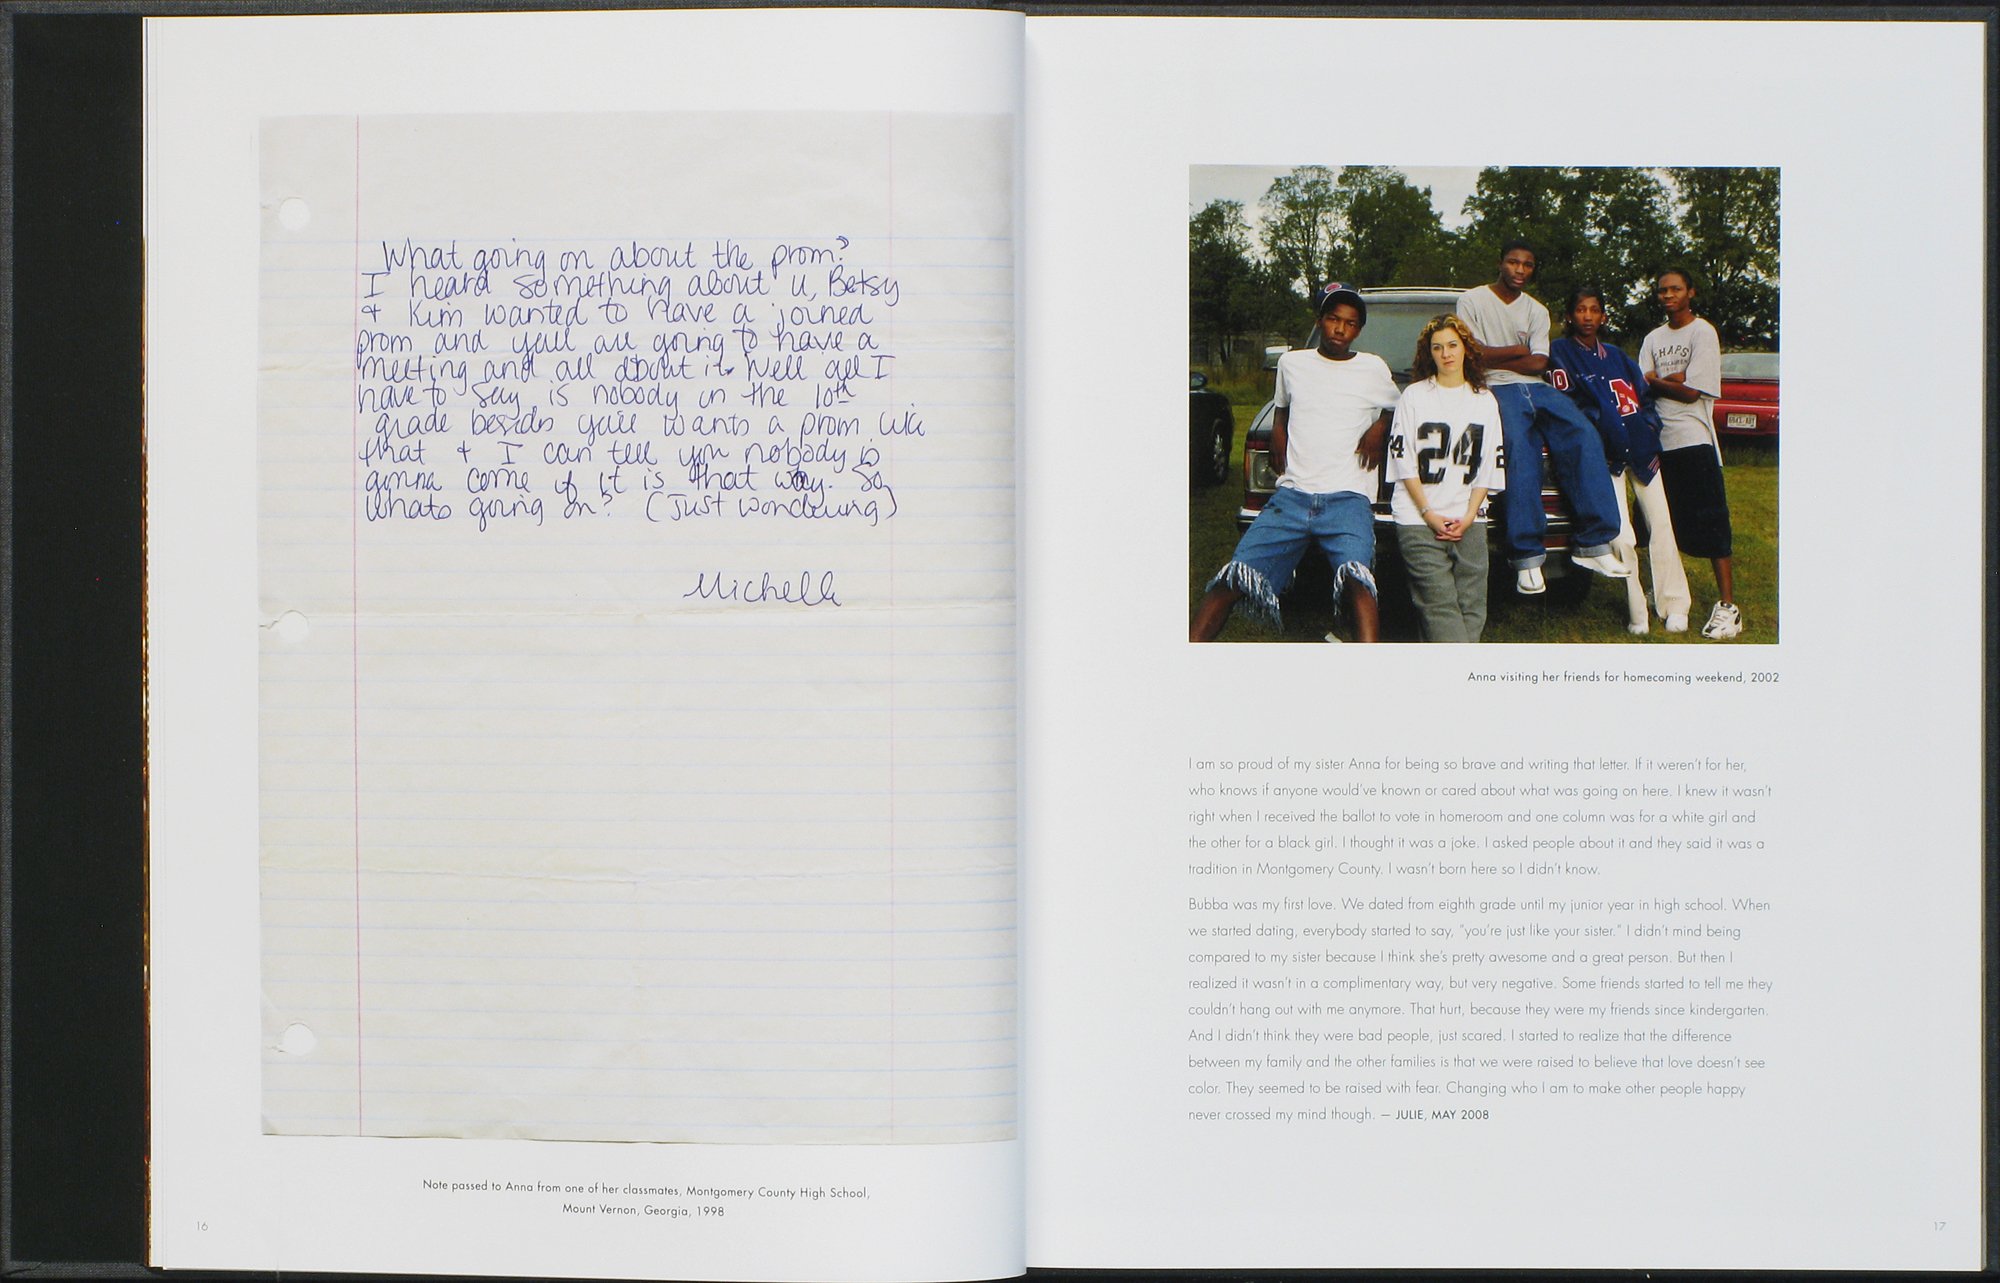 What going on about the prom?
I heard something about u, Betsy
+ Kim wanted to have a joined
prom and yall are going to have a
meeting and all about it. Well all I
have to say is nobody in the 10th
grade besides yall wants a prom like
that + I can tell you nobody is
gonna come if it is that way. So
whats going on? (Just wondering)
Michelle
Note passed to Anna from one of her classmates, Montgomery County High School,
Mount Vernon, Georgia, 1998
16
24
24
2
10
N
CHAPS
Anna visiting her friends for homecoming weekend, 2002
I am so proud of my sister Anna for being so brave and writing that letter. If it weren't for her,
who knows if anyone would've known or cared about what was going on here. I knew it wasn't
right when I received the ballot to vote in homeroom and one column was for a white girl and
the other for a black girl. I thought it was a joke. I asked people about it and they said it was a
tradition in Montgomery County. I wasn't born here so I didn't know.
Bubba was my first love. We dated from eighth grade until my junior year in high school. When
we started dating, everybody started to say, "you're just like your sister." I didn't mind being
compared to my sister because I think she's pretty awesome and a great person. But then I
realized it wasn't in a complimentary way, but very negative. Some friends started to tell me they
couldn't hang out with me anymore. That hurt, because they were my friends since kindergarten.
And I didn't think they were bad people, just scared. I started to realize that the difference
between my family and the other families is that we were raised to believe that love doesn't see
color. They seemed to be raised with fear. Changing who I am to make other people happy
never crossed my mind though. — JULIE, MAY 2008
17